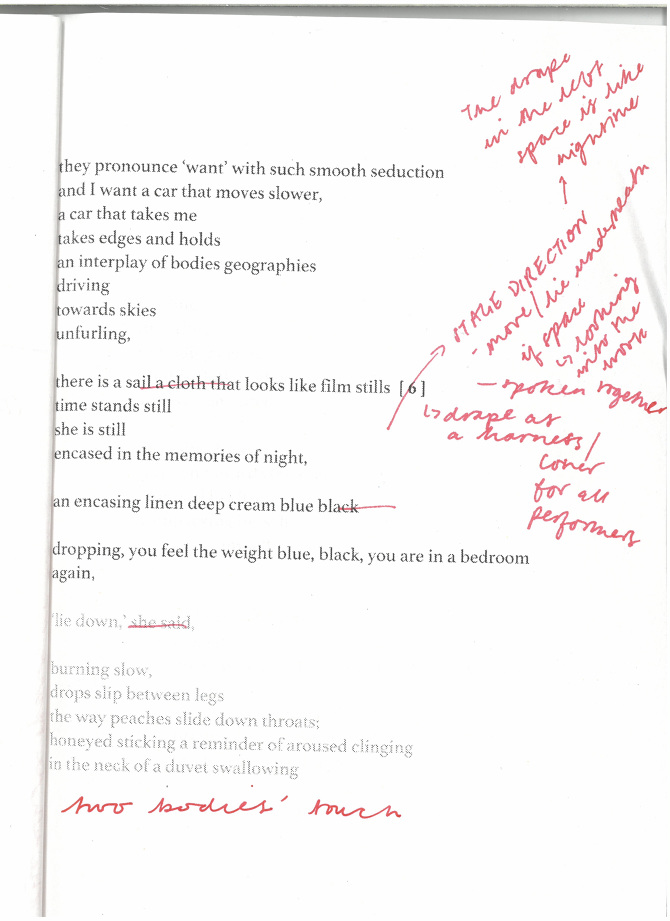 they pronounce ‘want’ with such smooth seduction
and I want a car that moves slower,
a car that takes me
takes edges and holds
an interplay of bodies geographies
driving
towards skies
unfurling,
there is a sail a cloth that looks like film stills [6]
time stands still
she is still
encased in the memories of night,
an encasing linen deep cream blue black
dropping, you feel the weight blue, black, you are in a bedroom
again,
‘lie down,’ she said,
burning slow,
drops slip between legs
the way peaches slide down throats;
honeyed sticking a reminder of aroused clinging
in the neck of a duvet swallowing
two bodies' touch
The drape
in the
space is like
nightime
STAGE DIRECTION
- move/lie underneath
if space
looking
into the
work
- spoken together
drape as
a harness/
cover
for all
performers